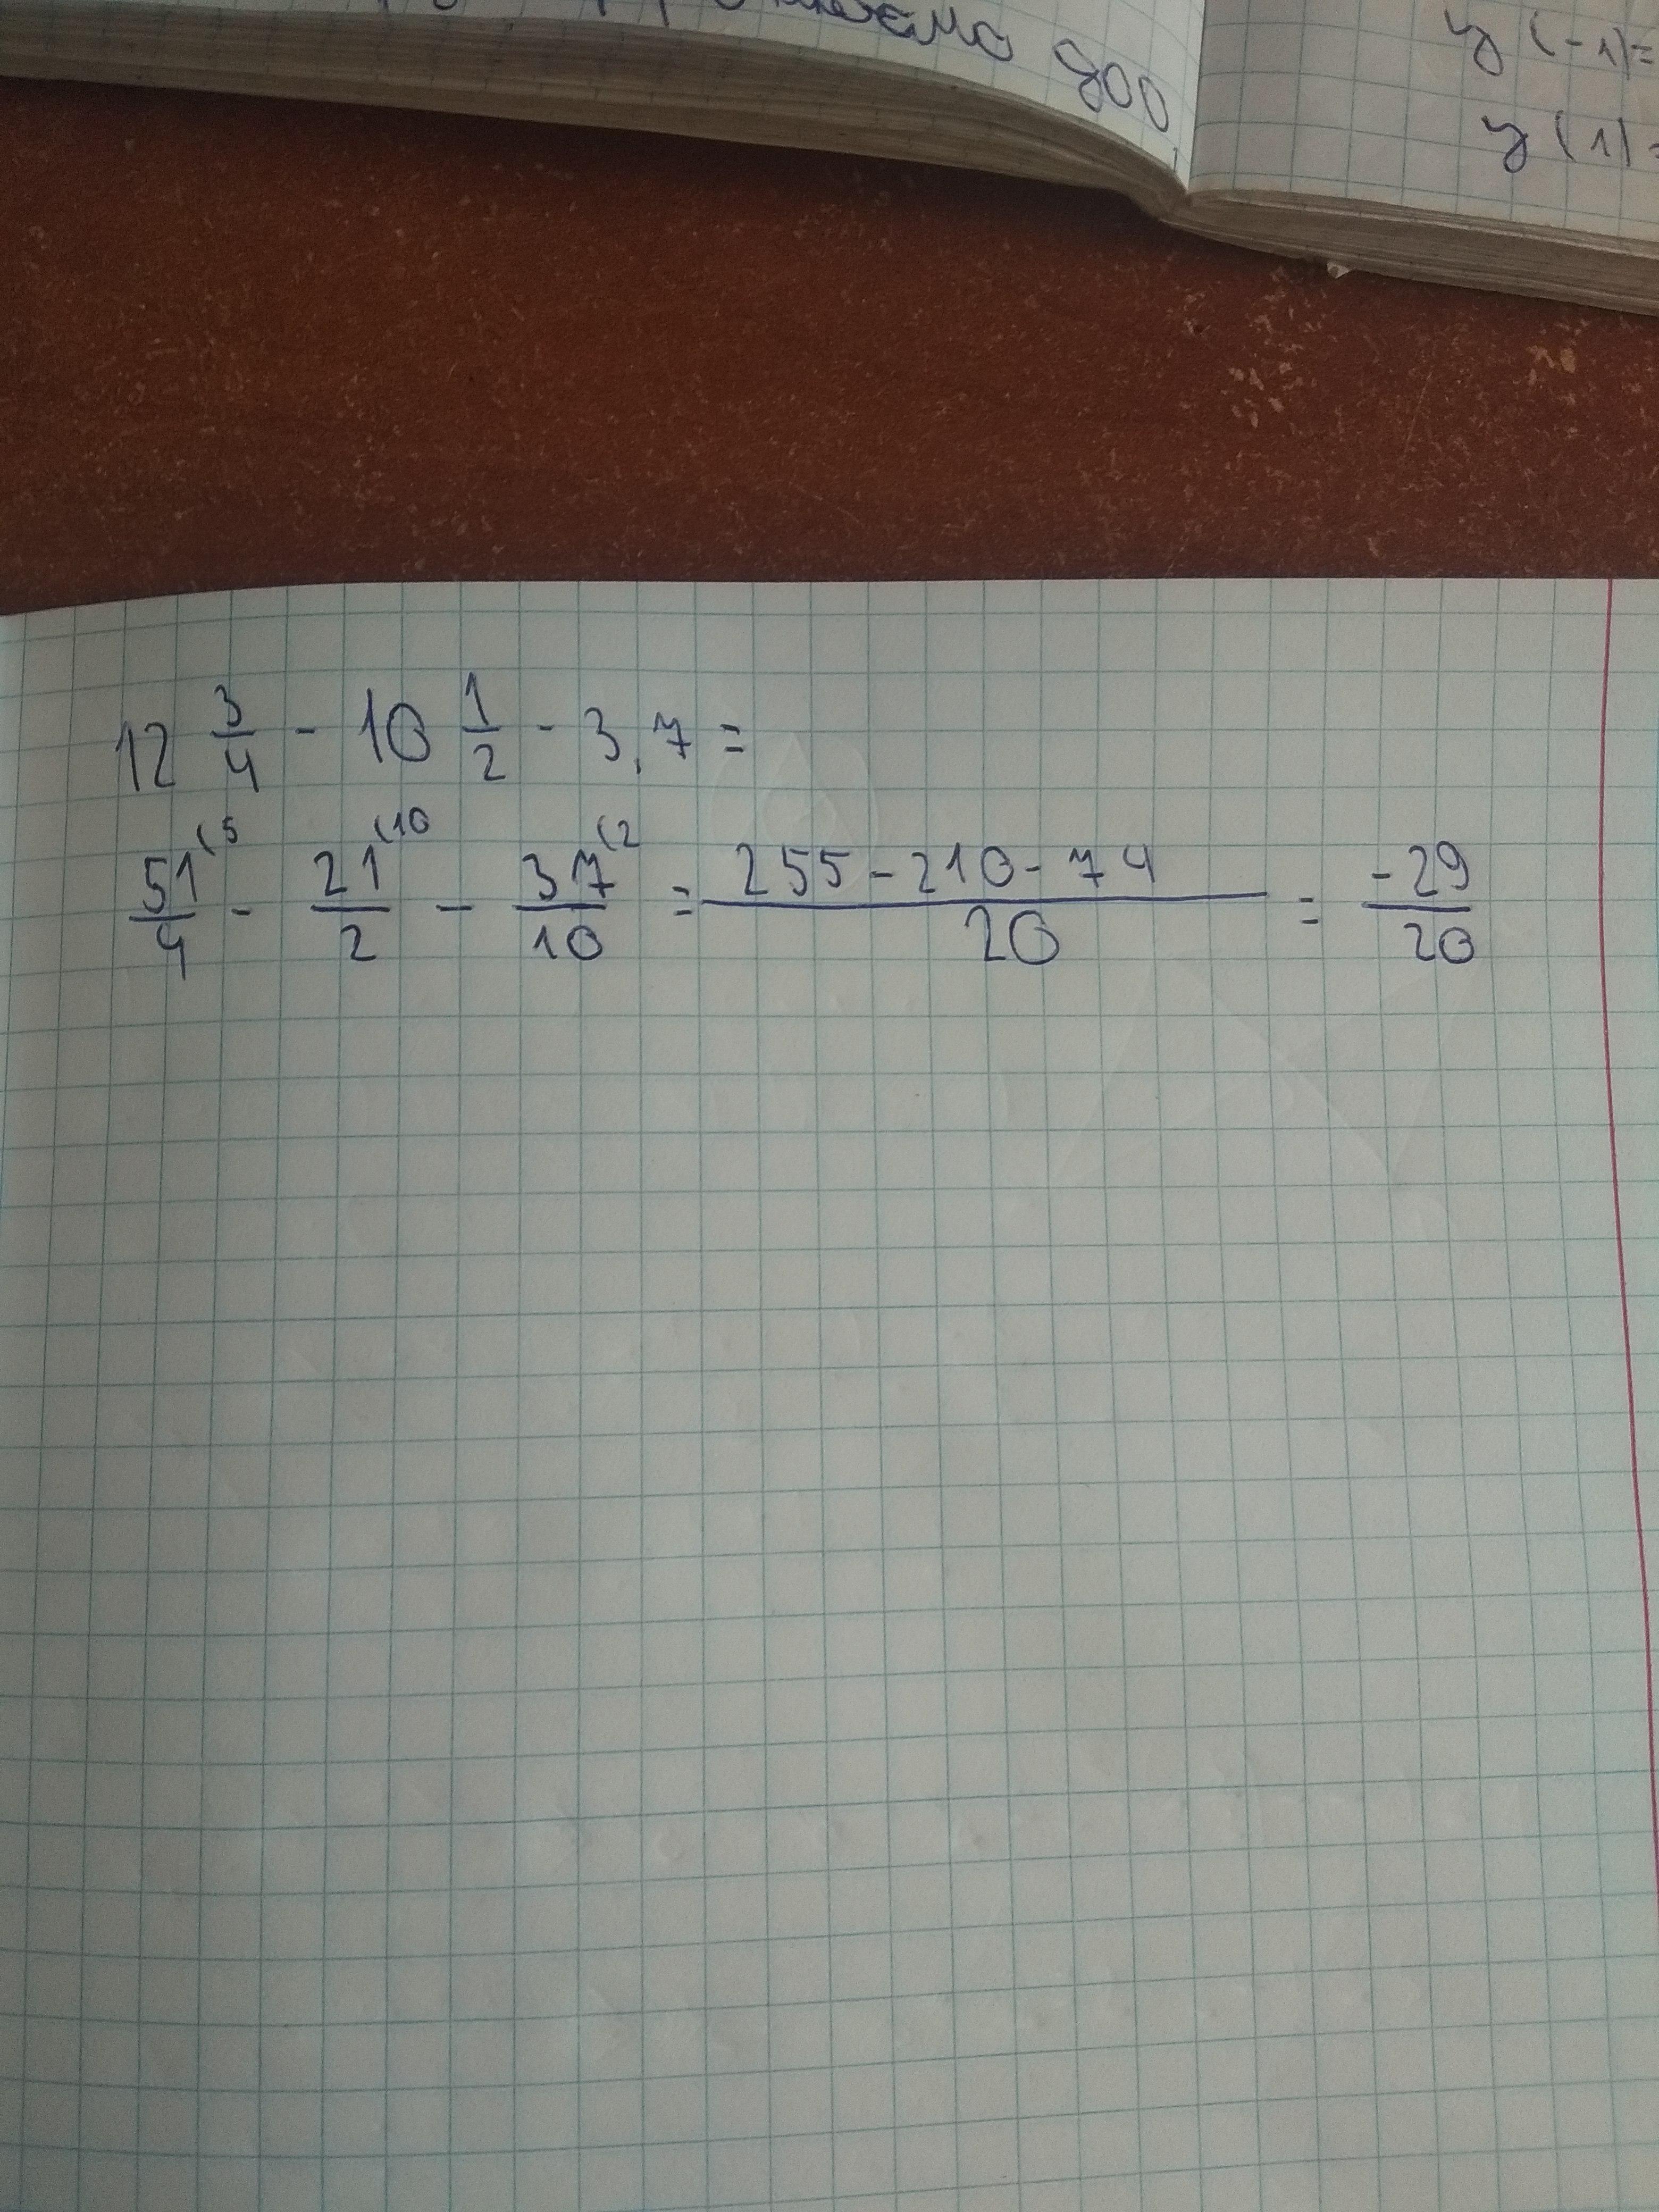 800
y (-1)=
y (1)=
12 3/4 - 10 1/2 - 3,7 =
51/4 (5 - 21/2 (10 - 37/10 (2 = 255-210-74/20 = -29/20